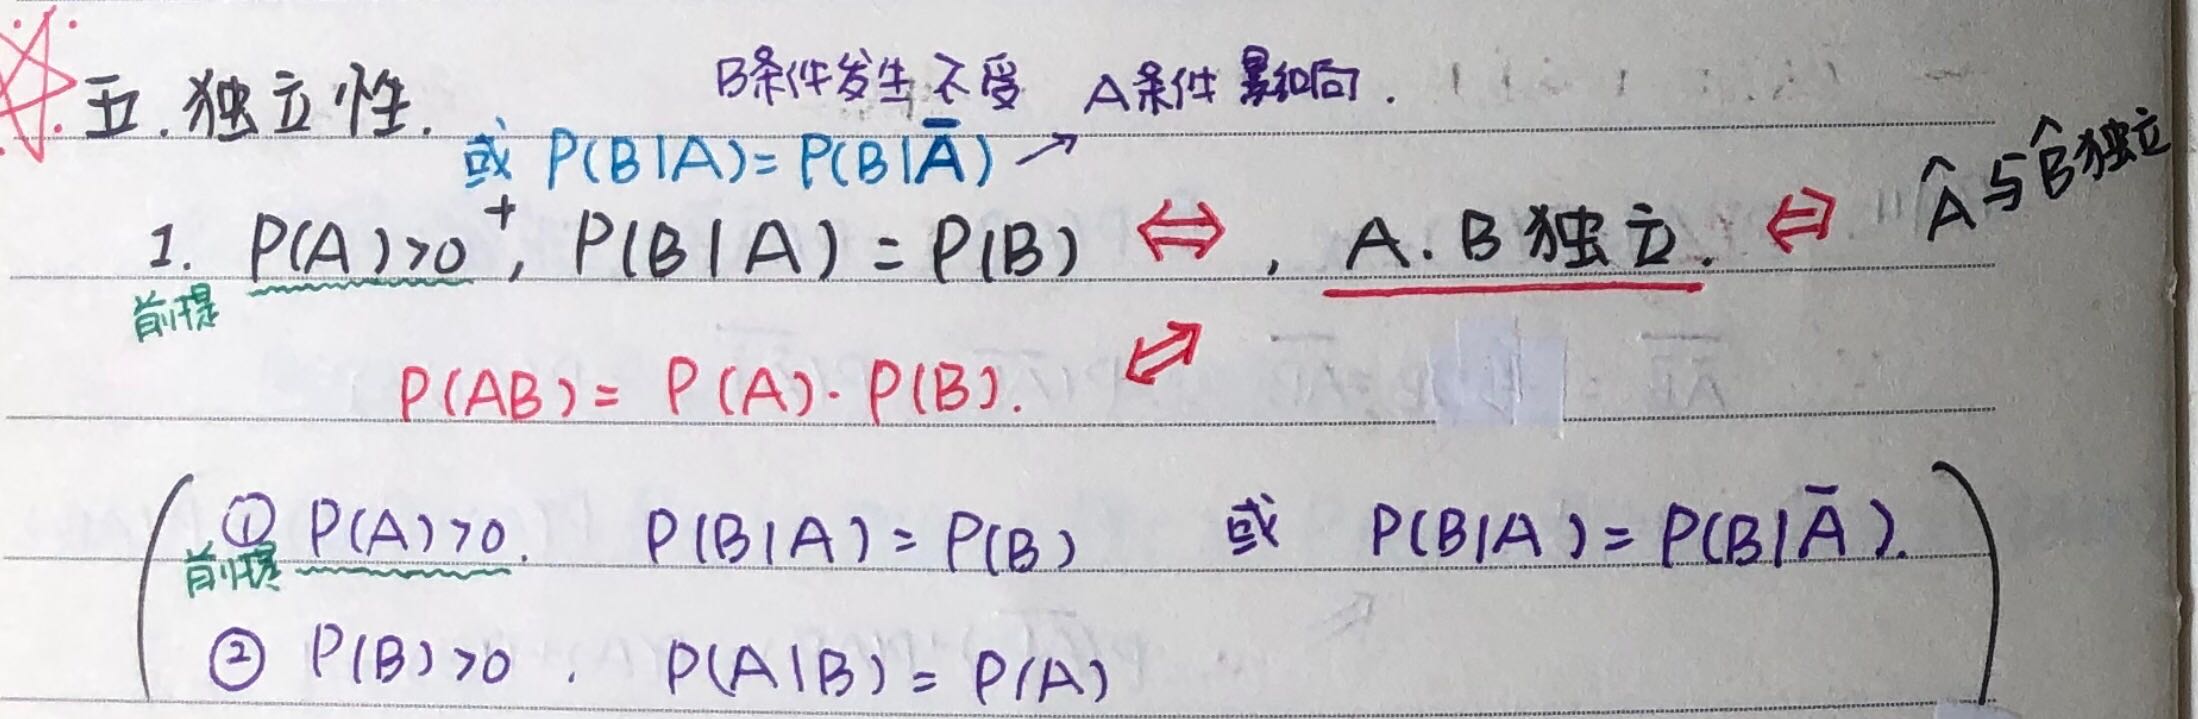 五.独立性. B条件发生不受 A条件影响.
或 P(B|A)=P(B|Ā) ↗
1. P(A)>0 + , P(B|A)=P(B) ⇔ , A.B独立. ⇔ Â与B̂独立
前提
P(AB)= P(A)·P(B). ⇔
① P(A)>0. P(B|A)=P(B) 或 P(B|A)=P(B|Ā).
前提
② P(B)>0 . P(A|B)=P(A)